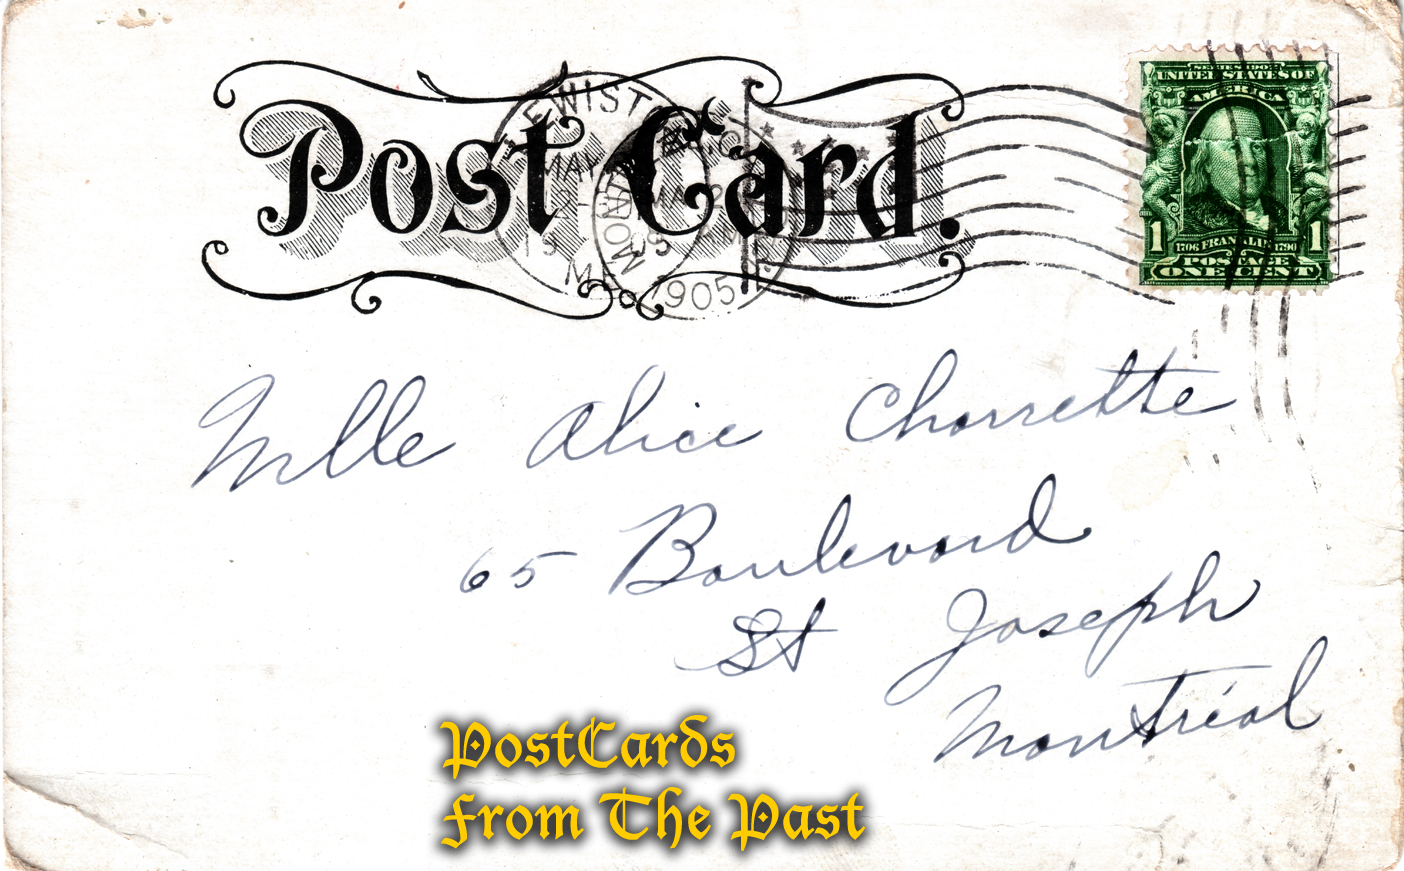 Post Card.
LEWIST
MAY
19
ME
MONTRÉAL
1905
SERIES 1902
UNITED STATES OF
AMERICA
1 1706 FRANKLIN 1790 1
POSTAGE
ONE CENT
Mlle Alice Charrette
65 Boulevard
St Joseph
Montréal
PostCards
From The Past